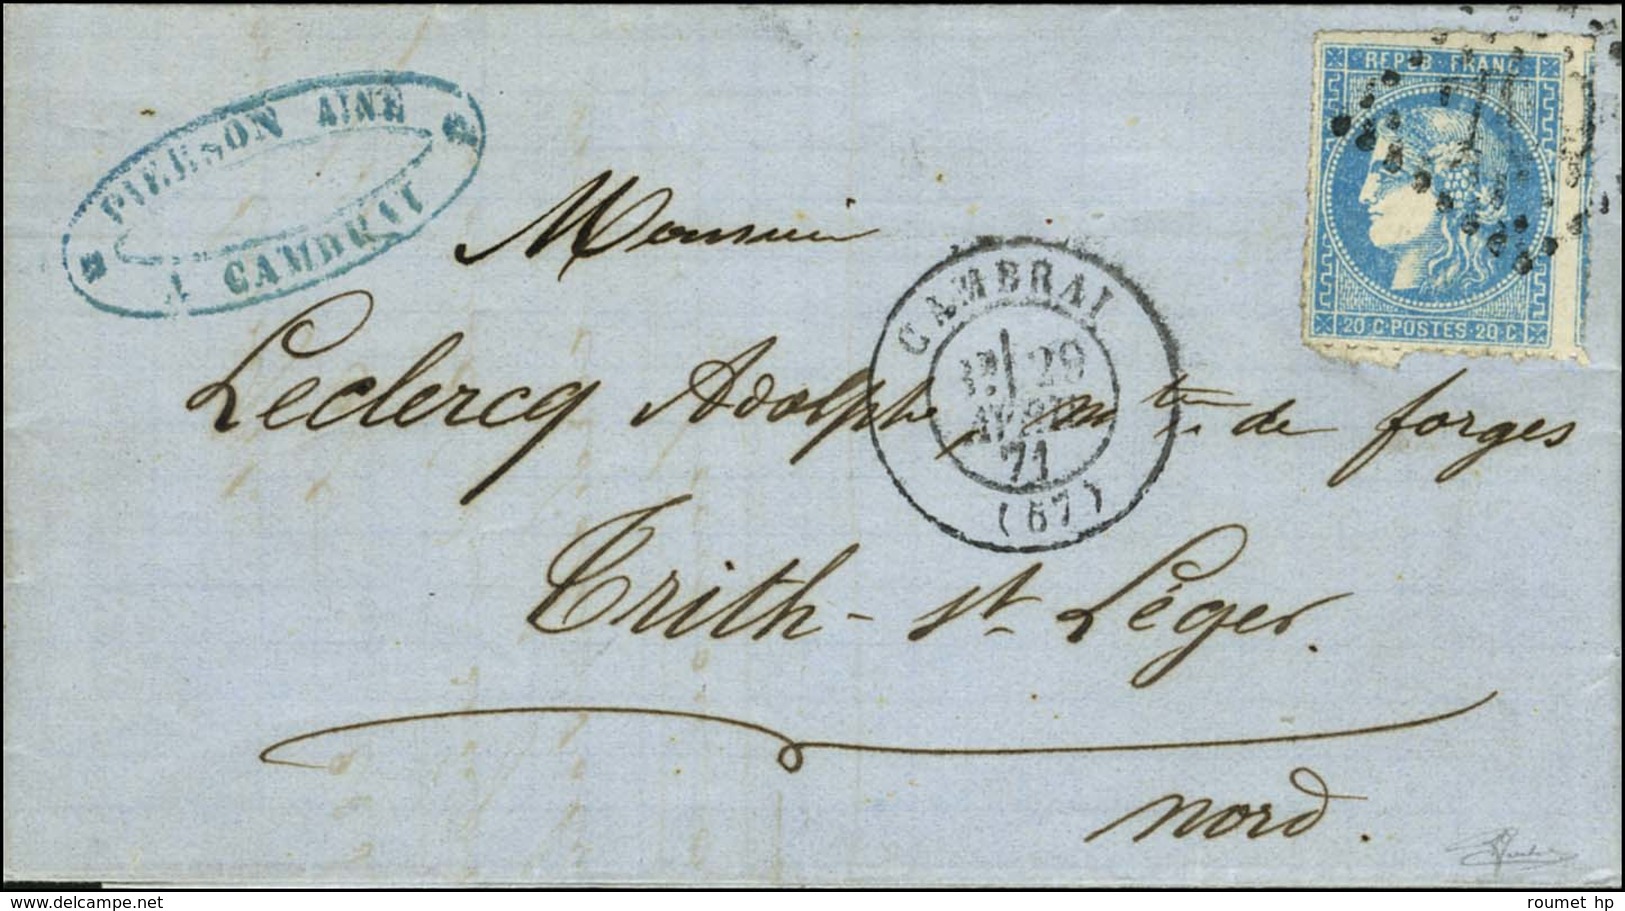 REPUB · FRANC
PIERSON AINE
A CAMBRAI
Monsieur
CAMBRAI
29
AVRIL
71
(57)
20 · C · POSTES · 20 · C
Leclercq Adolphe, mtre de forges
Trith - St Léger.
Nord.
www.delcampe.net
roumet hp